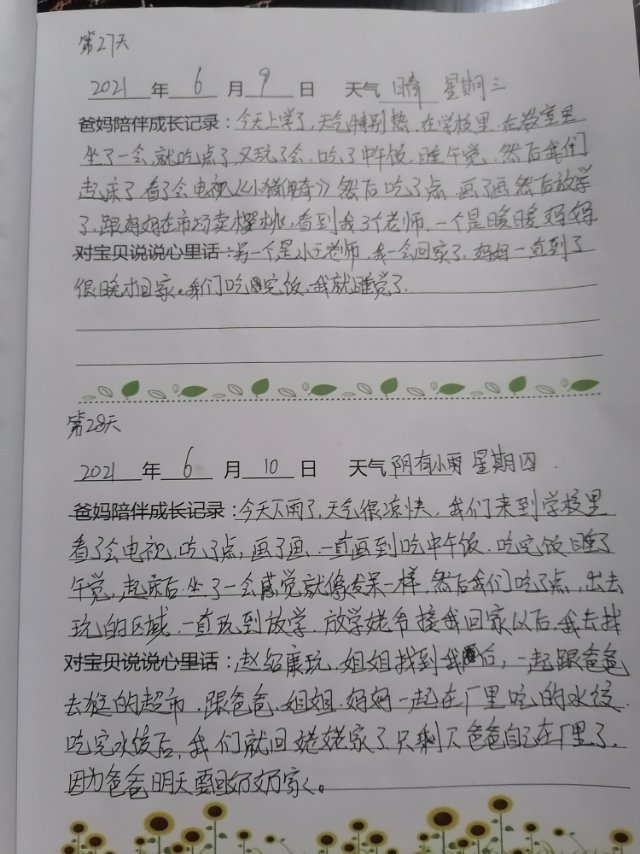 第27天
2021 年 6 月 9 日 天气 晴 星期三
爸妈陪伴成长记录：今天上学了，天气特别热，在学校里，在教室里
坐了一会，就吃点了，又玩了会，吃了中午饭，睡午觉，然后我们
起床了，看了会电视《小猪》然后吃了点，画了画，然后放学
了，跟妈妈在市场卖樱桃，看到我3个老师，一个是暖暖妈妈
对宝贝说说心里话：另一个是小王老师，我一会回家了，妈妈一直到了
很晚才回家。我们吃完饭，我就睡觉了.
第28天
2021 年 6 月 10 日 天气 阴有小雨 星期四.
爸妈陪伴成长记录：今天下雨了，天气很凉快，我们来到学校里
看了会电视，吃了点，画了画，一直画到吃中午饭，吃完饭睡了
午觉，起床后坐了一会感觉就像发呆一样，然后我们吃了点，出去
玩的区域，一直玩到放学，放学姥爷接我回家以后，我去找
对宝贝说说心里话：赵绍康玩，姐姐找到我后，一起跟爸爸
去的超市，跟爸爸，姐姐，妈妈一起在厂里吃的水饺
吃完水饺后，我们就回姥姥家了，只剩下爸爸自己在厂里了，
因为爸爸明天要回奶奶家。